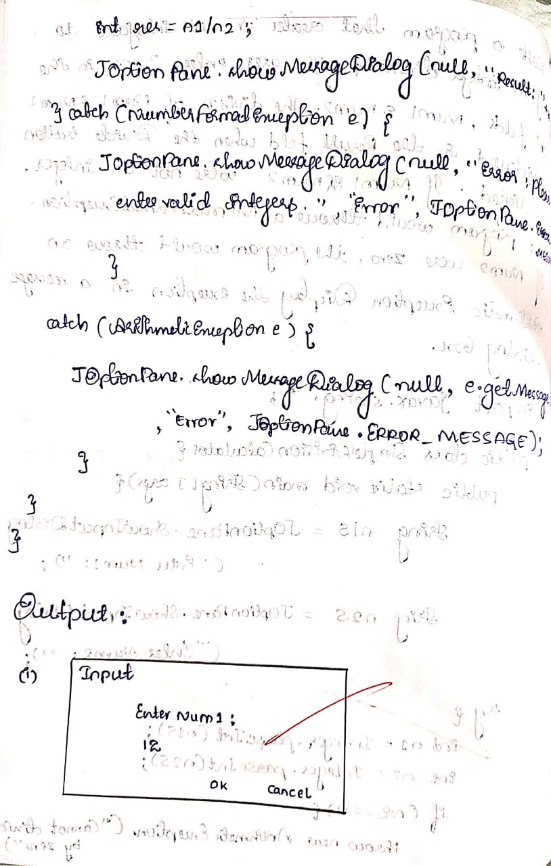 int res = n1/n2 ;
JOptionPane.showMessageDialog(null, "Result:"
} catch (NumberFormatException e) {
JOptionPane.showMessageDialog(null, "Error: Please
enter valid Integers." "Error", JOptionPane.
}
catch (ArithmeticException e) {
JOptionPane.showMessageDialog(null, e.getMessage
, "Error", JOptionPane.ERROR_MESSAGE);
}
}
}
Output:
(i)
Input
Enter Num1 :
12
OK Cancel